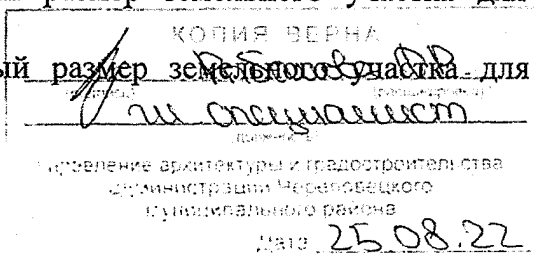 размер земельного участка для
КОПИЯ ВЕРНА
ый размер земельного участка для
гл специалист
Управление архитектуры и градостроительства
администрации Череповецкого
муниципального района
Дата 25.08.22